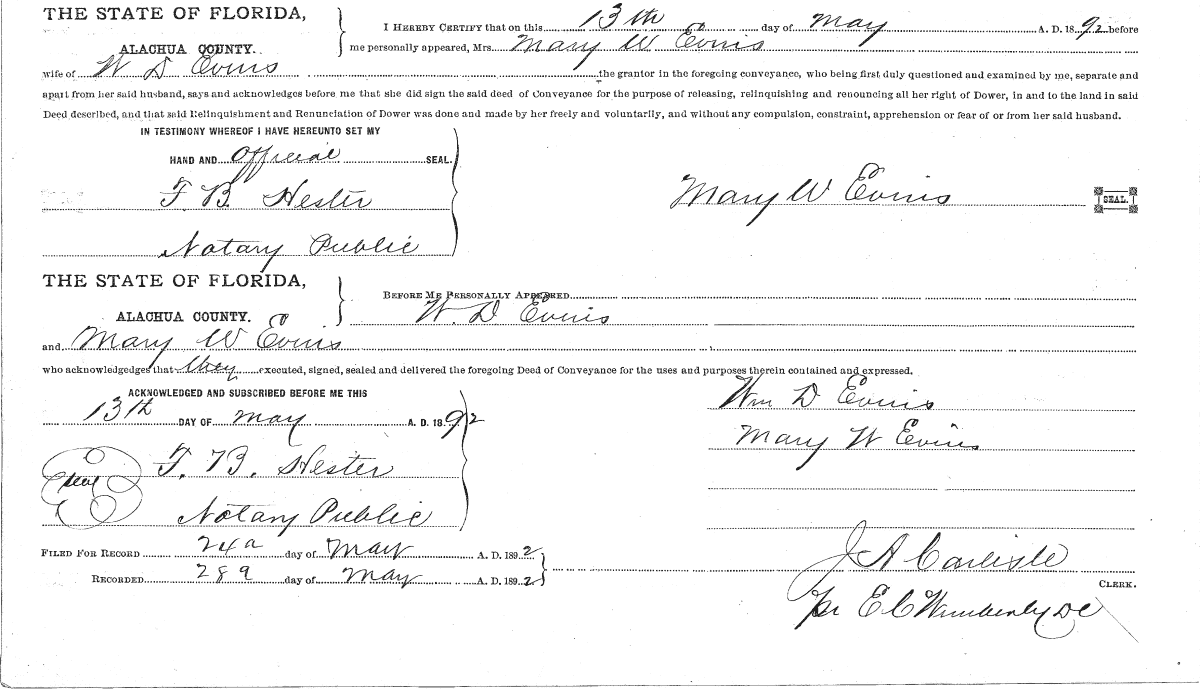 THE STATE OF FLORIDA,
ALACHUA COUNTY.
I HEREBY CERTIFY that on this 13th day of May A. D. 1892 before
me personally appeared, Mrs. Mary W Evins
wife of W D Evins the grantor in the foregoing conveyance, who being first duly questioned and examined by me, separate and
apart from her said husband, says and acknowledges before me that she did sign the said deed of Conveyance for the purpose of releasing, relinquishing and renouncing all her right of Dower, in and to the land in said
Deed described, and that said Relinquishment and Renunciation of Dower was done and made by her freely and voluntarily, and without any compulsion, constraint, apprehension or fear of or from her said husband.
IN TESTIMONY WHEREOF I HAVE HEREUNTO SET MY
HAND AND Official SEAL.
F. B. Hester
Mary W Evins SEAL.
Notary Public
THE STATE OF FLORIDA,
ALACHUA COUNTY.
BEFORE ME PERSONALLY APPEARED
W. D Evins
and Mary W Evins
who acknowledgedges that they executed, signed, sealed and delivered the foregoing Deed of Conveyance for the uses and purposes therein contained and expressed.
ACKNOWLEDGED AND SUBSCRIBED BEFORE ME THIS
13th DAY OF May A. D. 1892
Wm D Evins
Mary W Evins
Seal F. B. Hester
Notary Public
FILED FOR RECORD 24 day of May A. D. 1892
RECORDED 28 day of May A. D. 1892
J A Carlisle
CLERK.
pr E C Wimberly DC